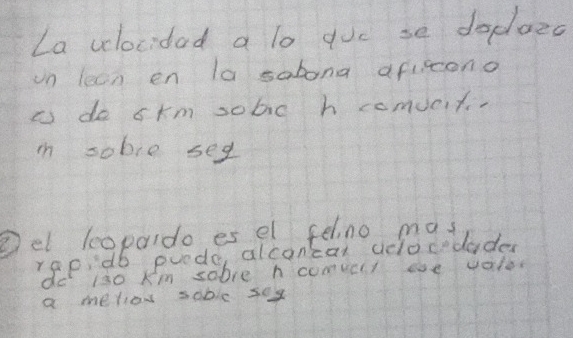 La velocidad a lo que se desplaza
un leon en la sabana africano
es de 5km sobre h comvertir
m sobre seg
② el leopardo es el felino mas
rapido puede alcanzar velocidades
de 130 km sobre h convertir ese valor
a metros sobre seg